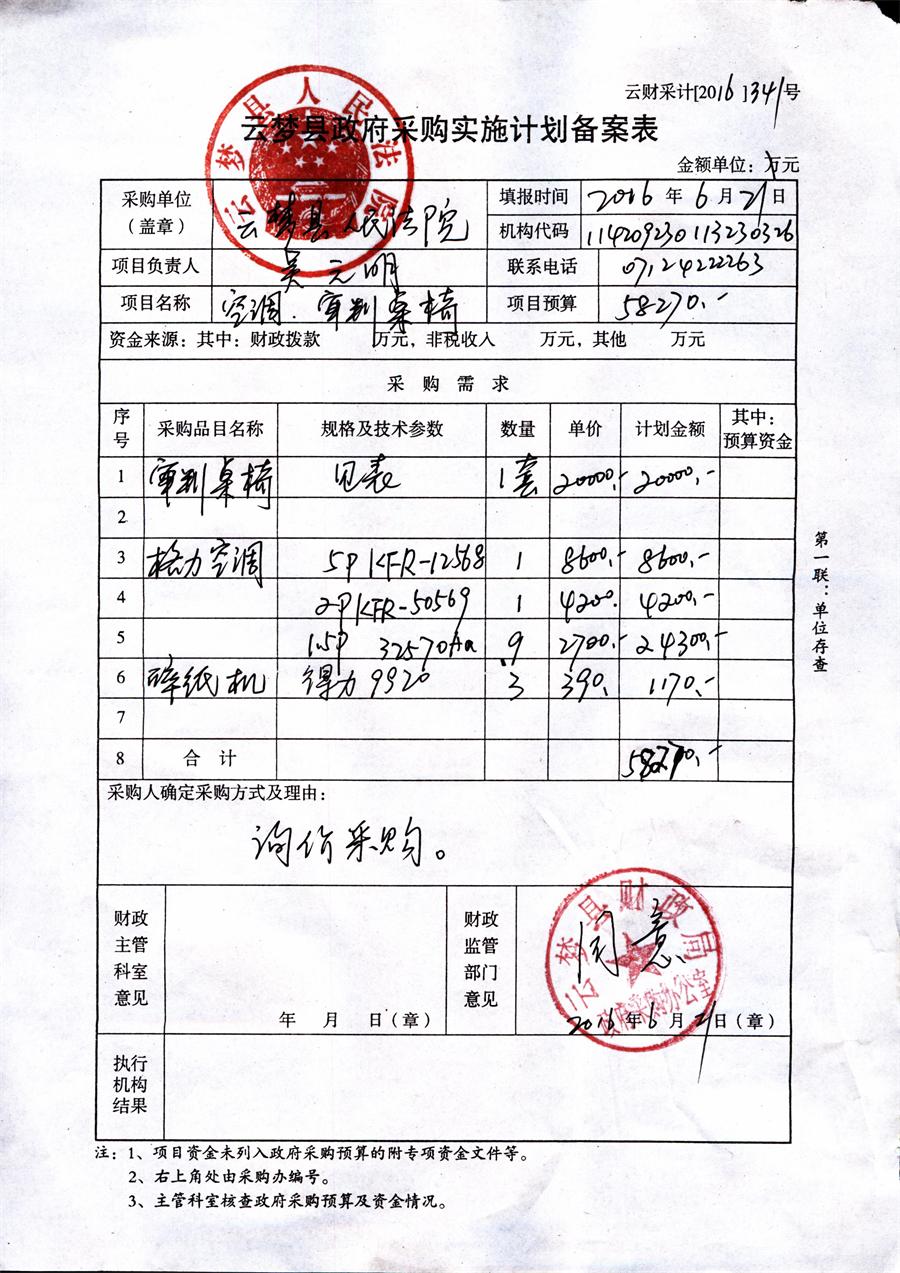 云财采计[2016]341号
云梦县政府采购实施计划备案表
金额单位：万元
采购单位（盖章） 云梦县人民法院 填报时间 2016年6月21日
机构代码 114209230113230326
项目负责人 吴元明 联系电话 07124222263
项目名称 空调.审判桌椅 项目预算 58270.-
资金来源：其中：财政拨款 万元，非税收入 万元，其他 万元
采购需求
序号 采购品目名称 规格及技术参数 数量 单价 计划金额 其中：预算资金
1 审判桌椅 见表 1套 20000.- 20000.-
2
3 格力空调 5P KFR-12568 1 8600.- 8600.-
4 2P KFR-50569 1 4200. 4200.-
5 1.5P 32570Aa 9 2700.- 24300.-
6 碎纸机 得力9920 3 390. 1170.-
7
8 合计 58270.-
采购人确定采购方式及理由：
询价采购。
财政主管科室意见 年 月 日（章）
财政监管部门意见 同意 2016年6月21日（章）
执行机构结果
注：1、项目资金未列入政府采购预算的附专项资金文件等。
2、右上角处由采购办编号。
3、主管科室核查政府采购预算及资金情况。
第一联：单位存查
云梦县人民法院
云梦县财政局
政府采购办公室